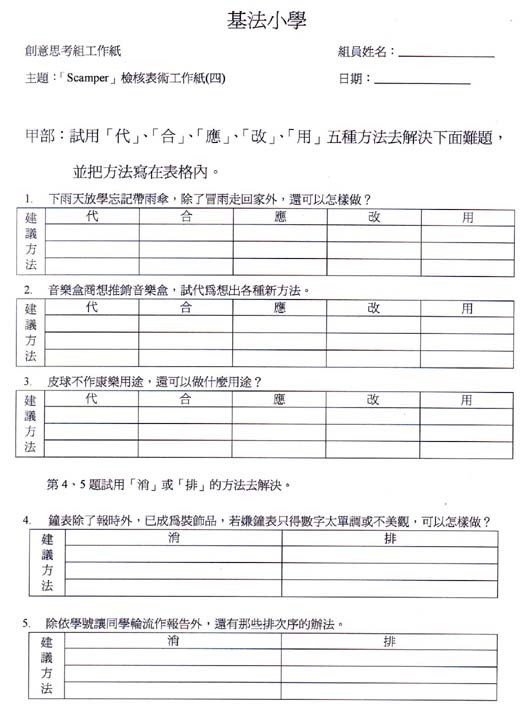 基法小學
創意思考組工作紙 組員姓名：
主題：「Scamper」檢核表術工作紙(四) 日期：
甲部：試用「代」、「合」、「應」、「改」、「用」五種方法去解決下面難題，
並把方法寫在表格內。
1. 下雨天放學忘記帶雨傘，除了冒雨走回家外，還可以怎樣做？
建議方法 代 合 應 改 用
2. 音樂盒商想推銷音樂盒，試代爲想出各種新方法。
建議方法 代 合 應 改 用
3. 皮球不作康樂用途，還可以做什麼用途？
建議方法 代 合 應 改 用
第 4、5 題試用「消」或「排」的方法去解決。
4. 鐘表除了報時外，已成爲裝飾品，若嫌鐘表只得數字太單調或不美觀，可以怎樣做？
建議方法 消 排
5. 除依學號讓同學輪流作報告外，還有那些排次序的辦法。
建議方法 消 排